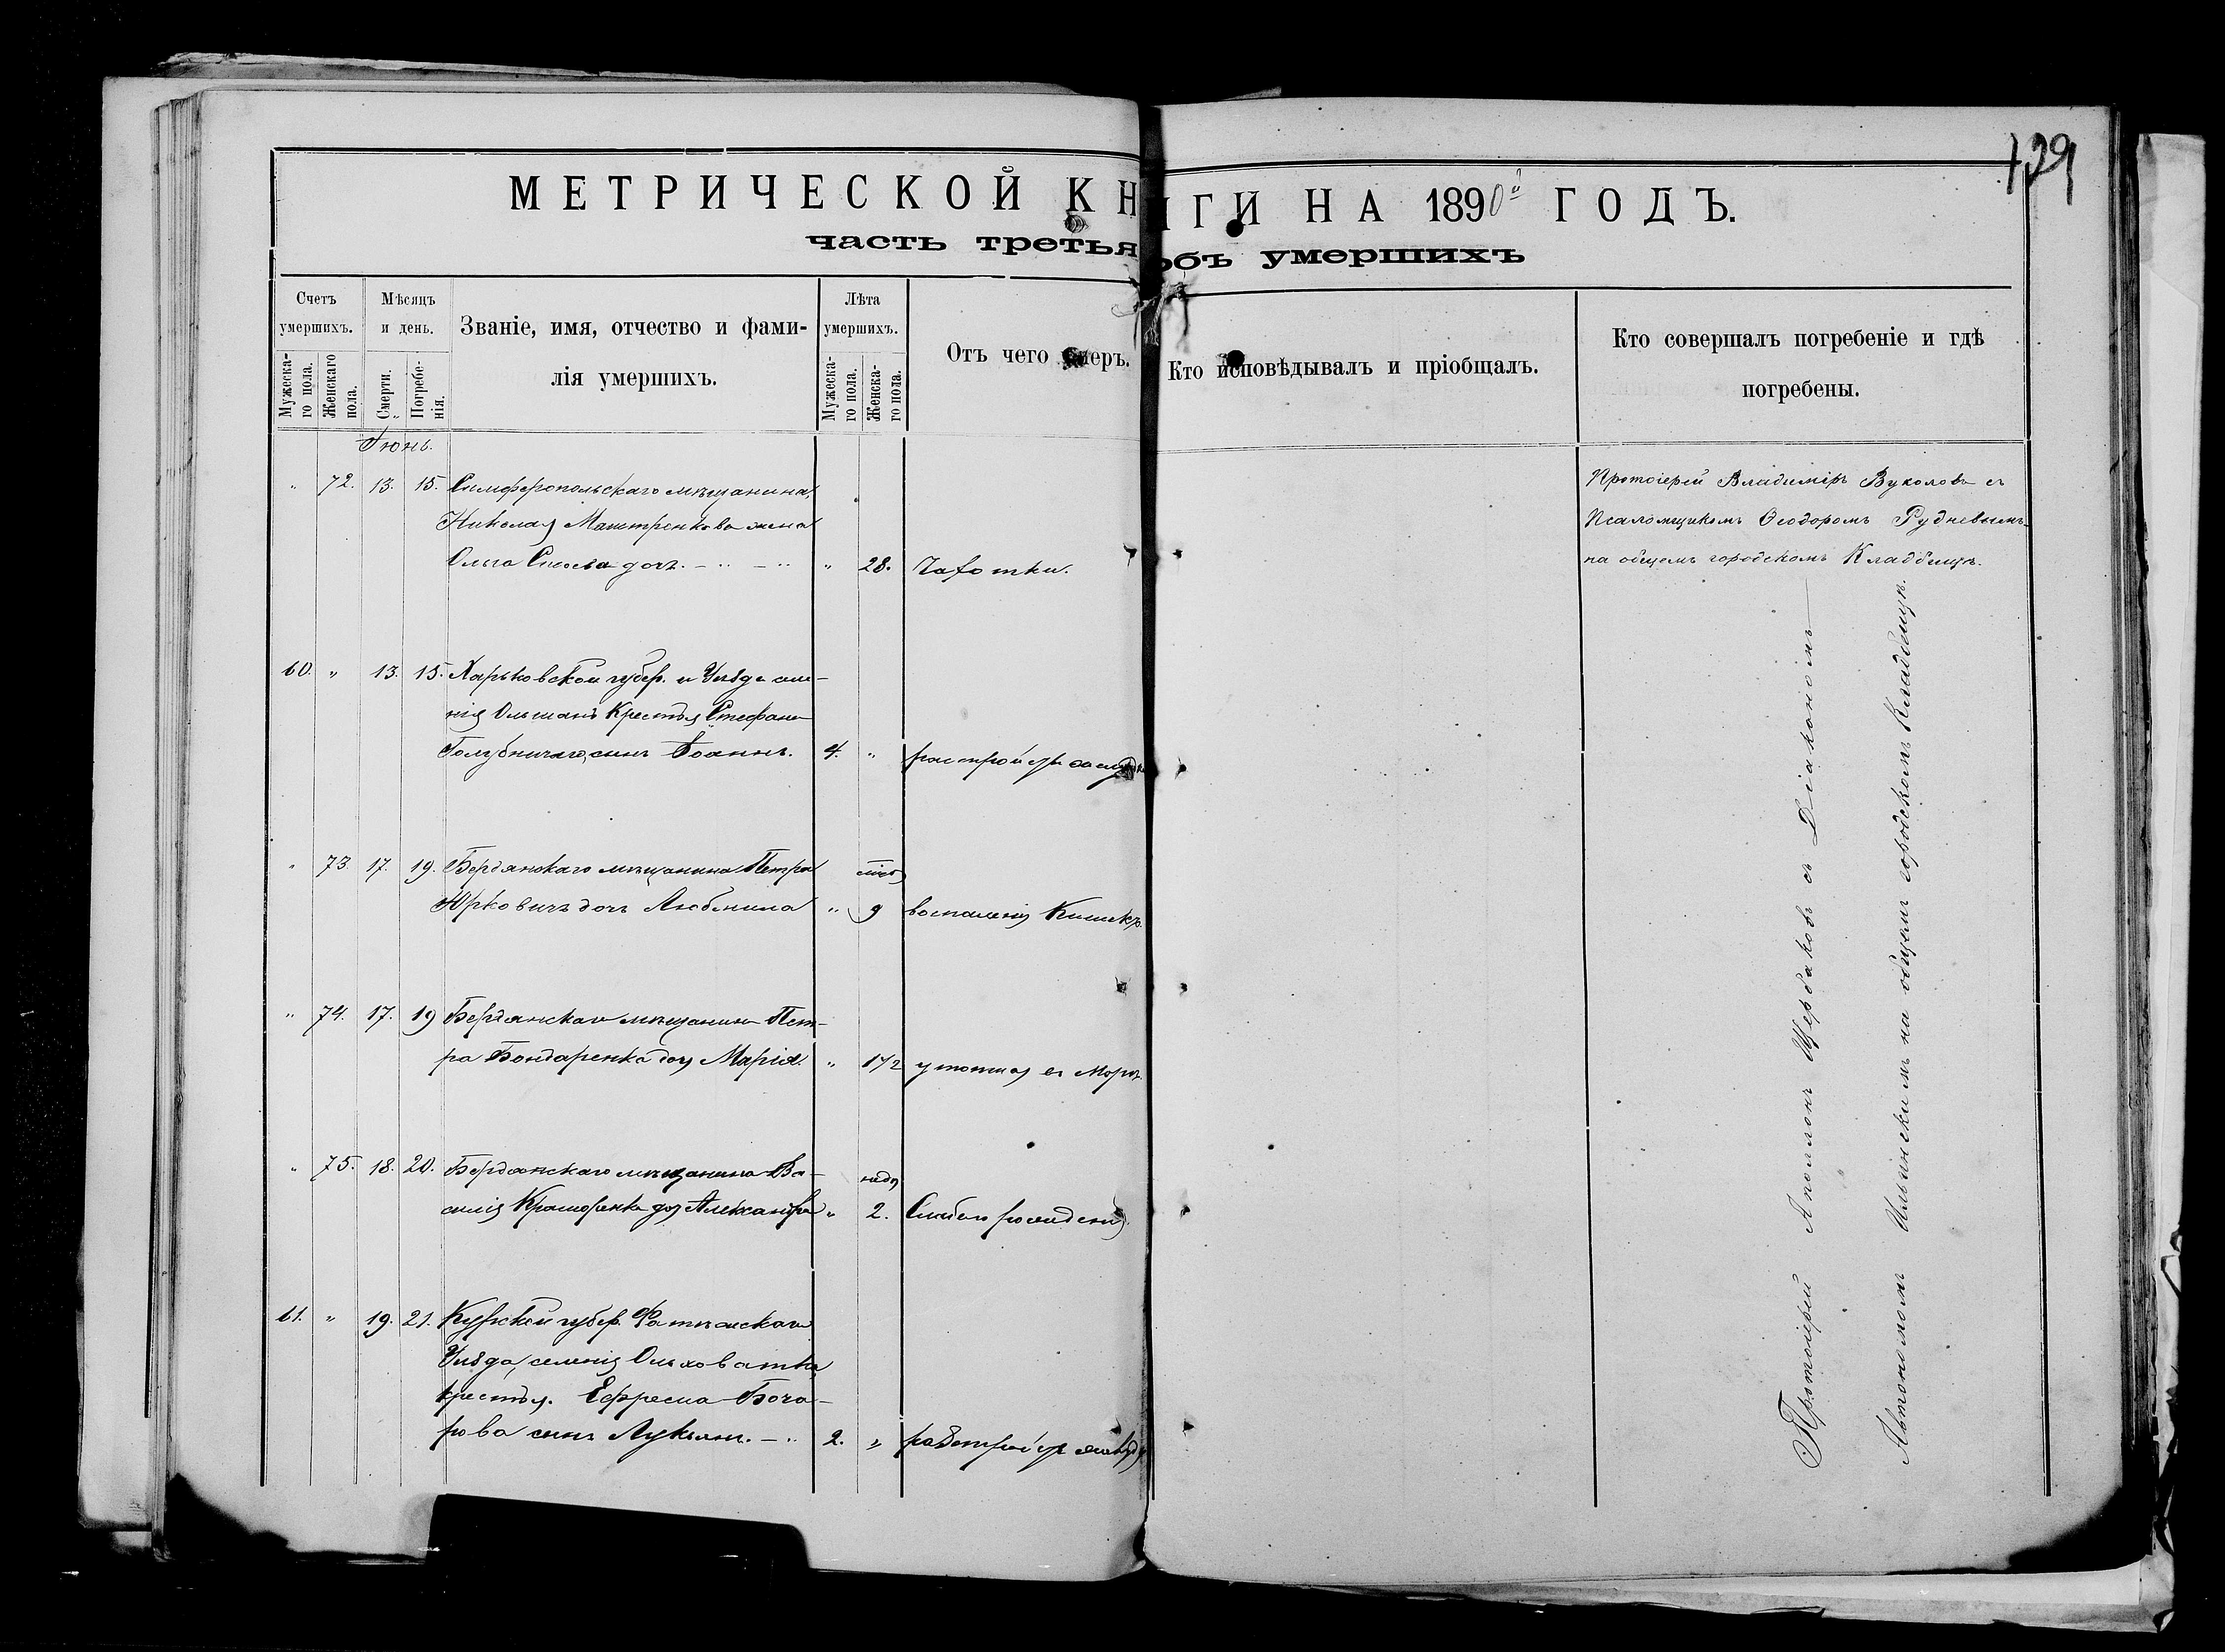 129
МЕТРИЧЕСКОЙ КНИГИ НА 1890й ГОДЪ.
часть третья объ умершихъ
Счетъ умершихъ.
Мужеска-го пола.
Женскаго пола.
Мѣсяцъ и день.
Смерти.
Погребе-нія.
Званіе, имя, отчество и фами-
лія умершихъ.
Лѣта умершихъ.
Мужеска-го пола.
Женска-го пола.
Отъ чего умеръ.
Кто исповѣдывалъ и пріобщалъ.
Кто совершалъ погребеніе и гдѣ
погребены.
Іюнь.
" 72. 13. 15. Симферопольскаго мѣщанина,
Николая жена
Ольга дочь. " 28. Чахотки.
Протоіерей Владиміръ Вуколовъ съ
Псаломщикомъ Ѳеодоромъ Рудневымъ
на общемъ городскомъ Кладбищѣ.
60. " 13. 15. Харьковской губер. и Уѣзда селе-
нія Ольшанъ Крестья. Стефана
Голубничаго, сынъ Іоаннъ. 4. "
" 73. 17. 19. Бердянскаго мѣщанина Петра
Юрковичъ дочь Людмила " 9 воспаленія Кишекъ.
" 74. 17. 19 Бердянскаго мѣщанина Пет-
ра Бондаренка дочь Марія. " 1 1/2 утонула въ Морѣ.
" 75. 18. 20. Бердянскаго мѣщанина Ва-
силія дочь Александра " 2.
61. " 19. 21. Курской губер. Фатежскаго
Уѣзда, селенія Ольховатка
крестья. Ефрема Боча-
рова сынъ Лукьянъ. 2. "
Протоіерей Аполлонъ Щербаковъ съ Діакономъ
Автономомъ Ильинскимъ на общемъ городскомъ Кладбищѣ.